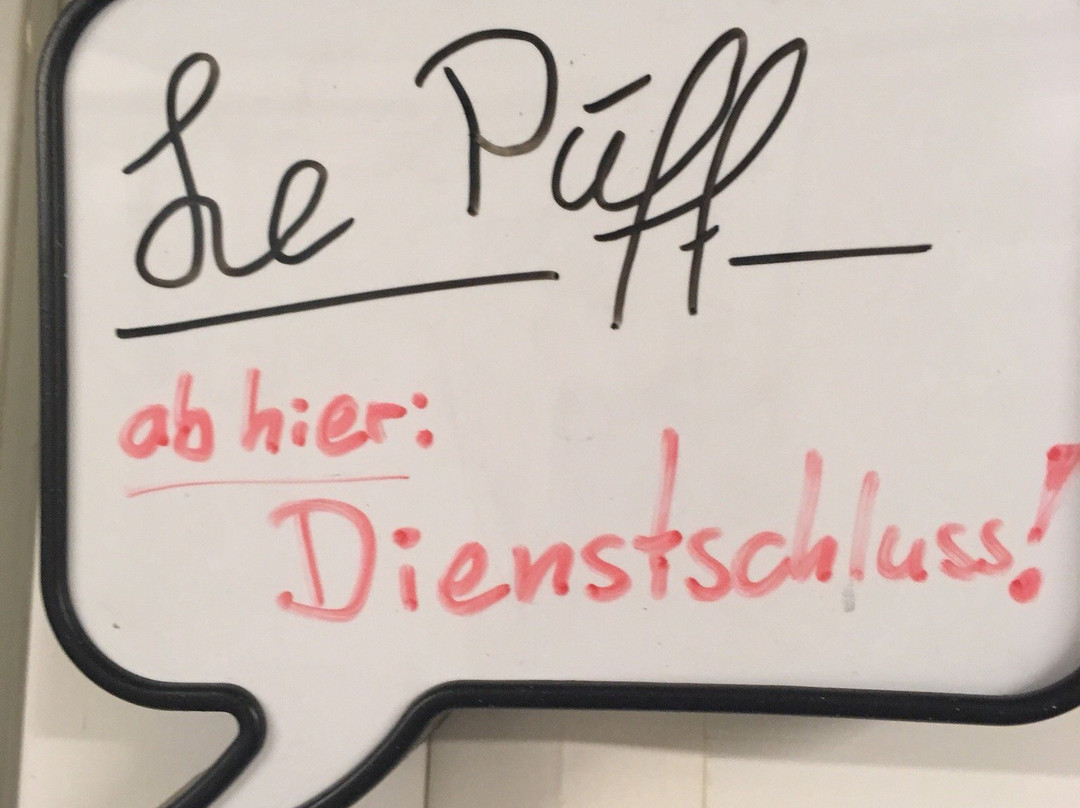 Le Púff
ab hier:
Dienstschluss!